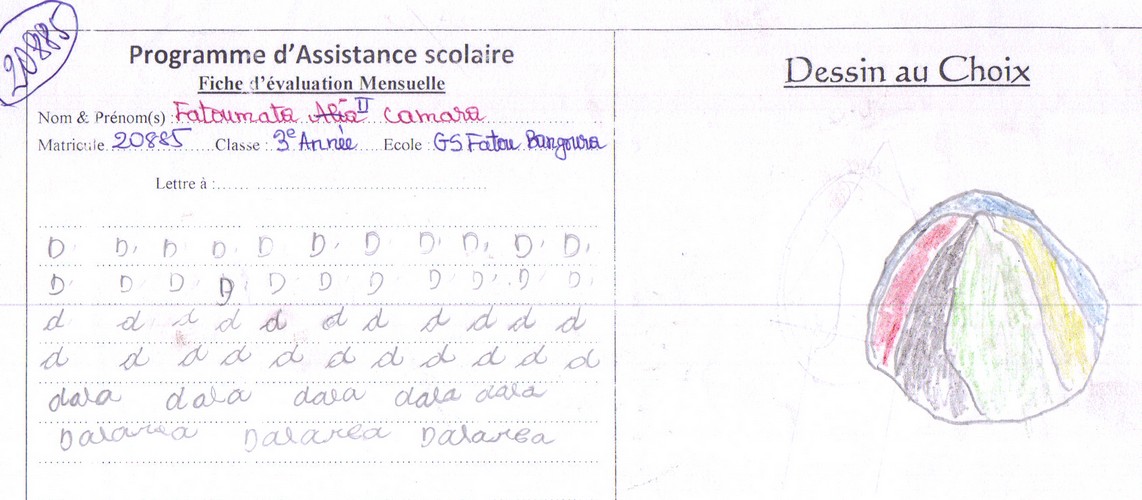 20885
Programme d'Assistance scolaire
Fiche d'évaluation Mensuelle
Nom & Prénom(s) : Fatoumata II Camara
Matricule 20885 Classe : 3e Année Ecole : GS Fatou Bangoura
Lettre à :
D D, D D D D, D D, D, D, D,
D D D D D D D D D, D D,
d d d d d d d d d d d
d d d d d d d d d d d
dala dala dala dala dala
Dessin au Choix